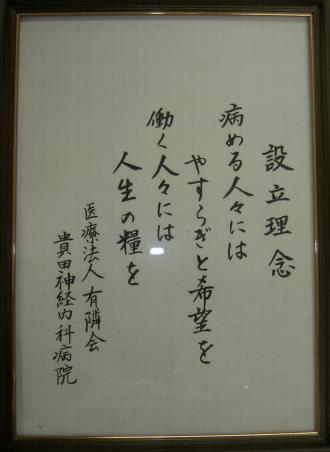 設立理念
病める人々には
やすらぎと希望を
働く人々には
人生の糧を
医療法人 有隣会
貴田神経内科病院